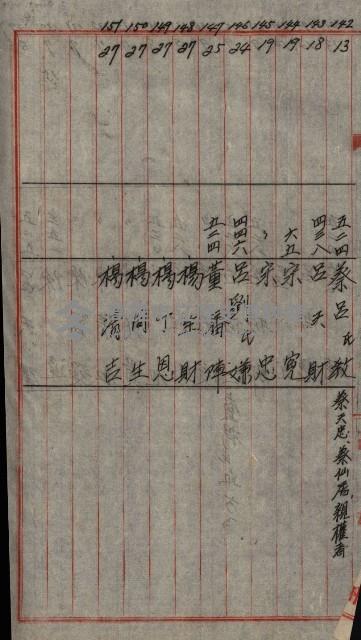 142 13 五二四 蔡呂氏教 蔡天忠、蔡仙居親權者
143 18 四三八 呂天財
144 19 六五 宋寬
145 19 〃 宋忠
146 24 四四六 呂劉氏嫌
147 25 五二四 董潘俥
148 27 楊 財
149 27 楊丁恩
150 27 楊同生
151 27 楊清吉